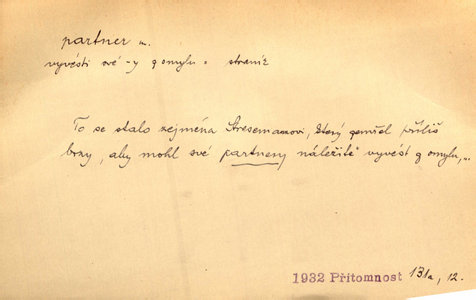 partner m.
vyvésti své -y z omylu
To se stalo zejména Stresemannovi, který zemřel příliš
brzy, aby mohl své partnery náležitě vyvést z omylu, ...
1932 Přítomnost 131a, 12.